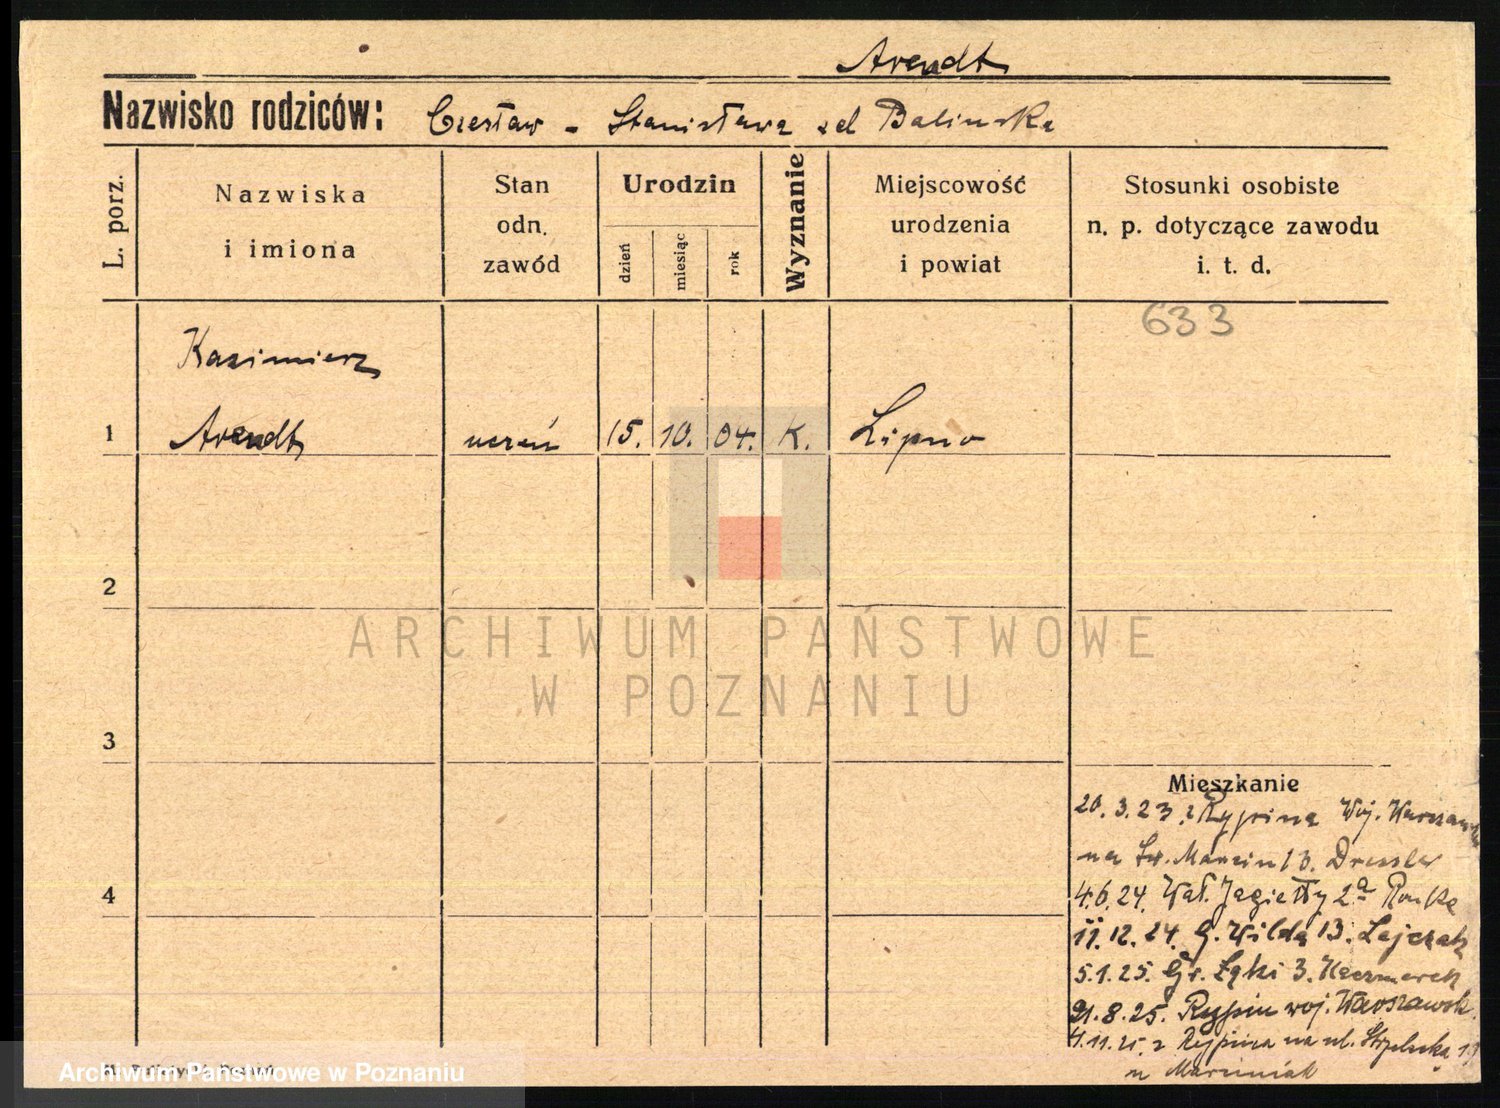 Arendt
Nazwisko rodziców: Czesław - Stanisława zd Balinska
L. porz.
Nazwiska
i imiona
Stan
odn.
zawód
Urodzin
dzień
miesiąc
rok
Wyznanie
Miejscowość
urodzenia
i powiat
Stosunki osobiste
n. p. dotyczące zawodu
i. t. d.
633
Kazimierz
1 Arendt uczeń 15. 10. 04. K. Lipno
2
ARCHIWUM PAŃSTWOWE
W POZNANIU
3
Mieszkanie
20.3.23. z Rypina Woj. Warszawsk
na Św. Marcin 13. Dressler
4
4.6.24. Wał. Jagiełły 2a
11.12.24. G. Wilda 13.
5.1.25. Gr. Łąki 3. Kaczmarek
21.8.25. Rypin woj. Warszawsk.
4.11.25. z Rypina na ul. Strzelecką
u Marciniak
Archiwum Państwowe w Poznaniu